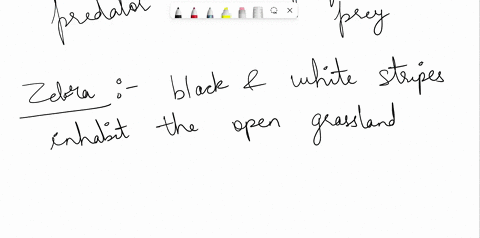 predator prey
Zebra :- black & white stripes
inhabit the open grassland